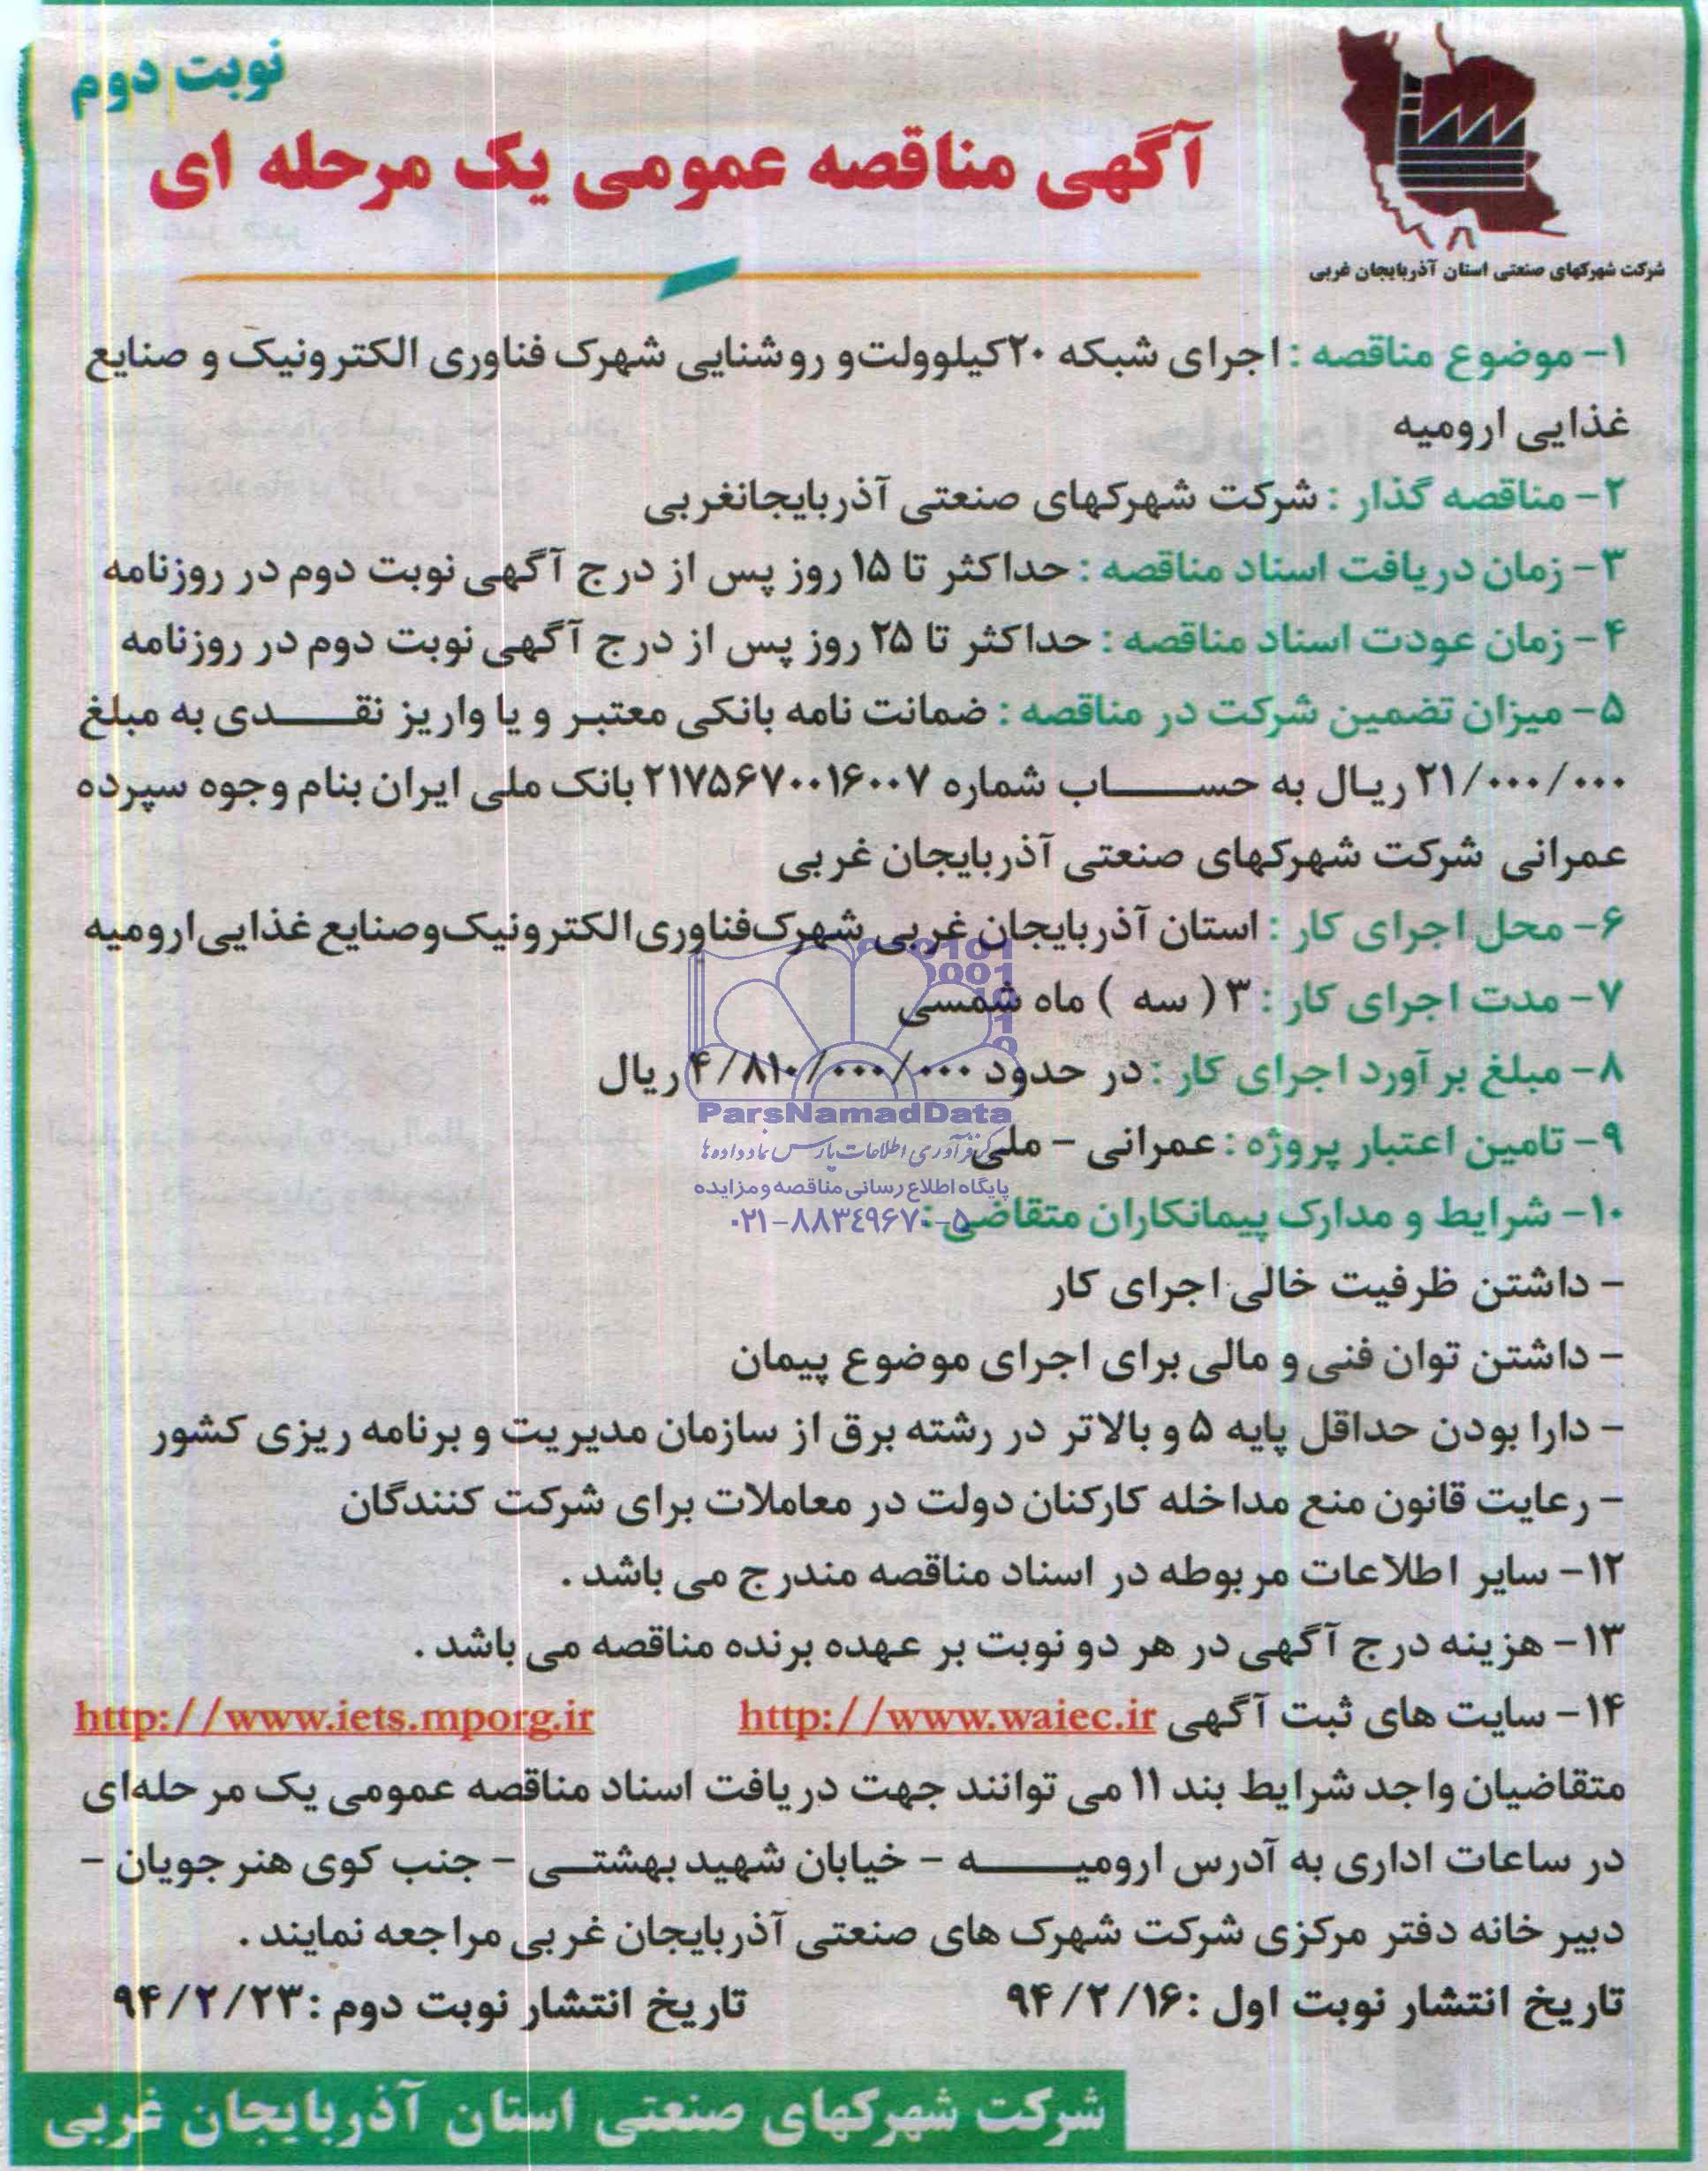 نوبت دوم
آگهی مناقصه عمومی یک مرحله ای
شرکت شهرکهای صنعتی استان آذربایجان غربی
۱- موضوع مناقصه : اجرای شبکه ۲۰کیلوولت و روشنایی شهرک فناوری الکترونیک و صنایع
غذایی ارومیه
۲- مناقصه گذار : شرکت شهرکهای صنعتی آذربایجانغربی
۳- زمان دریافت اسناد مناقصه : حداکثر تا ۱۵ روز پس از درج آگهی نوبت دوم در روزنامه
۴- زمان عودت اسناد مناقصه : حداکثر تا ۲۵ روز پس از درج آگهی نوبت دوم در روزنامه
۵- میزان تضمین شرکت در مناقصه : ضمانت نامه بانکی معتبر و یا واریز نقـــــدی به مبلغ
۲۱/۰۰۰/۰۰۰ ریال به حســـــاب شماره ۲۱۷۵۶۷۰۰۱۶۰۰۷ بانک ملی ایران بنام وجوه سپرده
عمرانی شرکت شهرکهای صنعتی آذربایجان غربی
۶- محل اجرای کار : استان آذربایجان غربی شهرک فناوری الکترونیک و صنایع غذایی ارومیه
۷- مدت اجرای کار : ۳ ( سه ) ماه شمسی
۸- مبلغ برآورد اجرای کار : در حدود ۴/۸۱۰/۰۰۰/۰۰۰ ریال
۹- تامین اعتبار پروژه : عمرانی - ملی
۱۰- شرایط و مدارک پیمانکاران متقاضی :
- داشتن ظرفیت خالی اجرای کار
- داشتن توان فنی و مالی برای اجرای موضوع پیمان
- دارا بودن حداقل پایه ۵ و بالاتر در رشته برق از سازمان مدیریت و برنامه ریزی کشور
- رعایت قانون منع مداخله کارکنان دولت در معاملات برای شرکت کنندگان
۱۲- سایر اطلاعات مربوطه در اسناد مناقصه مندرج می باشد .
۱۳- هزینه درج آگهی در هر دو نوبت بر عهده برنده مناقصه می باشد .
۱۴- سایت های ثبت آگهی http://www.waiec.ir http://www.iets.mporg.ir
متقاضیان واجد شرایط بند ۱۱ می توانند جهت دریافت اسناد مناقصه عمومی یک مرحله‌ای
در ساعات اداری به آدرس ارومیـــــه - خیابان شهید بهشتـــی - جنب کوی هنرجویان -
دبیر خانه دفتر مرکزی شرکت شهرک های صنعتی آذربایجان غربی مراجعه نمایند .
تاریخ انتشار نوبت اول :۹۴/۲/۱۶ تاریخ انتشار نوبت دوم :۹۴/۲/۲۳
شرکت شهرکهای صنعتی استان آذربایجان غربی
ParsNamadData
فرآوری اطلاعات پارس نماد داده‌ها
پایگاه اطلاع رسانی مناقصه و مزایده
۰۲۱-۸۸۳۴۹۶۷۰-۵